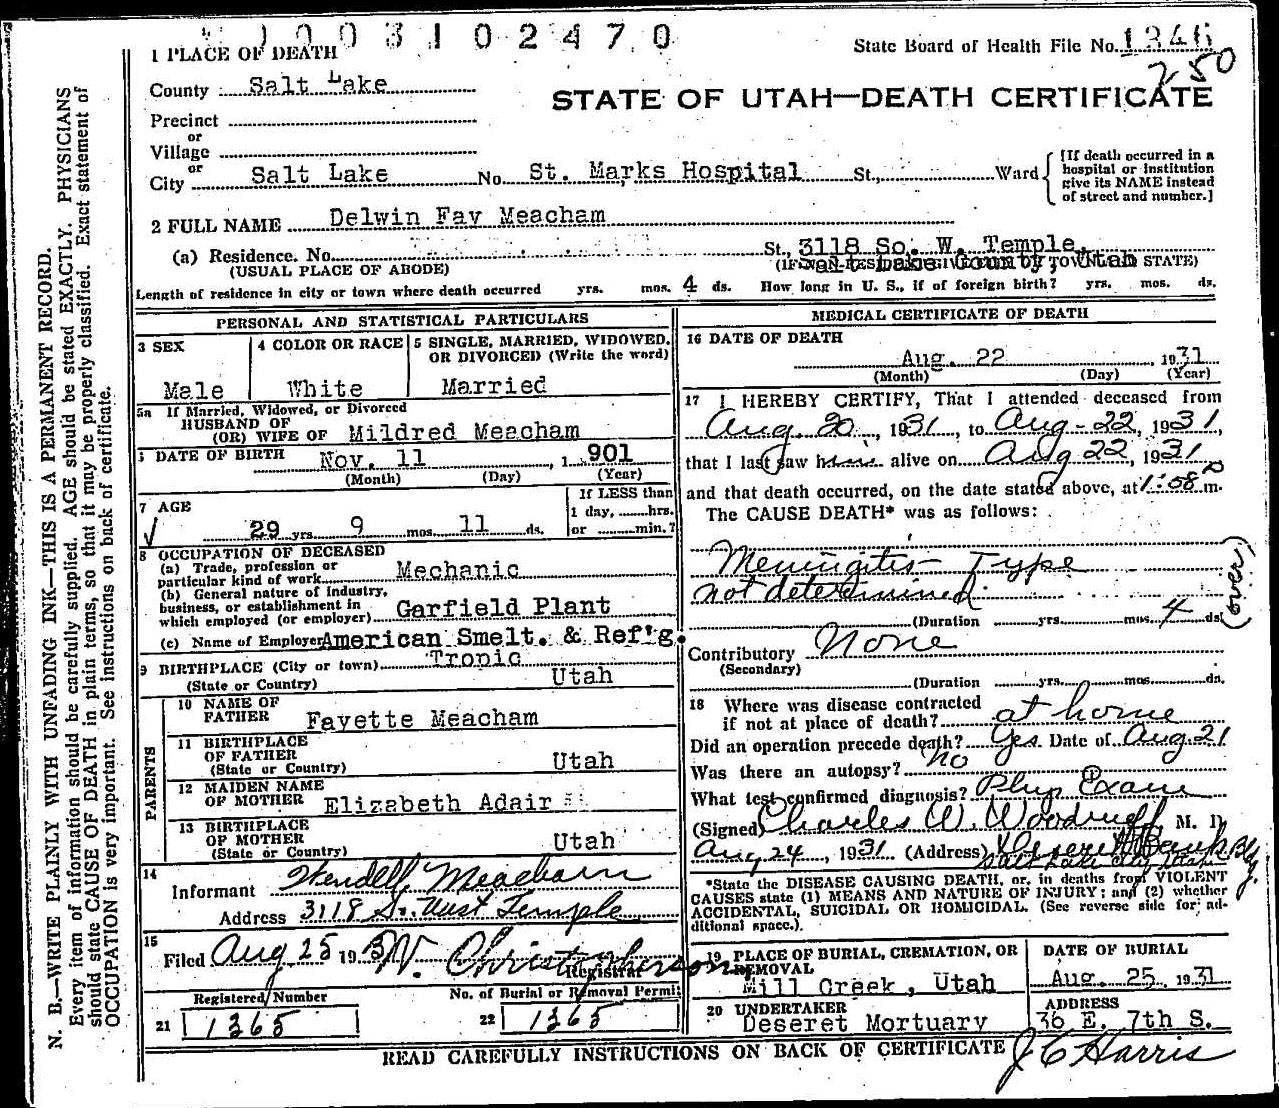 0003102470
1 PLACE OF DEATH
State Board of Health File No. 1346
250
County Salt Lake
STATE OF UTAH—DEATH CERTIFICATE
Precinct
or
Village
or
City Salt Lake No. St. Marks Hospital St., Ward
[If death occurred in a hospital or institution give its NAME instead of street and number.]
2 FULL NAME Delwin Fay Meacham
(a) Residence. No. St., 3118 So. W. Temple,
(USUAL PLACE OF ABODE) Salt Lake County, Utah
Length of residence in city or town where death occurred yrs. mos. 4 ds. How long in U. S., if of foreign birth? yrs. mos. ds.
PERSONAL AND STATISTICAL PARTICULARS
3 SEX
Male
4 COLOR OR RACE
White
5 SINGLE, MARRIED, WIDOWED, OR DIVORCED (Write the word)
Married
5a If Married, Widowed, or Divorced
HUSBAND OF
(OR) WIFE OF Mildred Meacham
DATE OF BIRTH Nov. 11, 1901
(Month) (Day) (Year)
7 AGE
29 yrs. 9 mos. 11 ds.
If LESS than
1 day, hrs.
or min.?
8 OCCUPATION OF DECEASED
(a) Trade, profession or
particular kind of work Mechanic
(b) General nature of Industry,
business, or establishment in
which employed (or employer) Garfield Plant
(c) Name of Employer American Smelt. & Ref'g.
9 BIRTHPLACE (City or town) Tropic
(State or Country) Utah
PARENTS
10 NAME OF
FATHER Fayette Meacham
11 BIRTHPLACE
OF FATHER
(State or Country) Utah
12 MAIDEN NAME
OF MOTHER Elizabeth Adair
13 BIRTHPLACE
OF MOTHER
(State or Country) Utah
14
Informant Wendell Meacham
Address 3118 So. West Temple
15
Filed Aug 25 1931 W. Christopherson
Registrar
Registered Number
21 1365
No. of Burial or Removal Permit
22 1365
MEDICAL CERTIFICATE OF DEATH
16 DATE OF DEATH
Aug. 22 1931
(Month) (Day) (Year)
17 I HEREBY CERTIFY, That I attended deceased from
Aug. 20, 1931, to Aug-22, 1931,
that I last saw him alive on Aug 22, 1931
and that death occurred, on the date stated above, at 1:58 P m.
The CAUSE DEATH* was as follows:
Meningitis - Type
not determined.
(over)
(Duration yrs. mos. 4 ds.
Contributory None
(Secondary)
(Duration yrs. mos. ds.
18 Where was disease contracted
if not at place of death? at home
Did an operation precede death? Yes. Date of Aug. 21
Was there an autopsy? no
What test confirmed diagnosis? Phys Exam
(Signed) Charles W. Woodruff M. D.
Aug 24, 1931 (Address) Deseret Bank Bldg.
Salt Lake City Utah
*State the DISEASE CAUSING DEATH, or, in deaths from VIOLENT
CAUSES state (1) MEANS AND NATURE OF INJURY; and (2) whether
ACCIDENTAL, SUICIDAL OR HOMICIDAL. (See reverse side for additional space.).
19 PLACE OF BURIAL, CREMATION, OR
REMOVAL
Mill Creek, Utah
DATE OF BURIAL
Aug. 25, 1931
20 UNDERTAKER
Deseret Mortuary
ADDRESS
36 E. 7th S.
READ CAREFULLY INSTRUCTIONS ON BACK OF CERTIFICATE
J C Harris
N. B.—WRITE PLAINLY WITH UNFADING INK—THIS IS A PERMANENT RECORD.
Every item of information should be carefully supplied. AGE should be stated EXACTLY. PHYSICIANS
should state CAUSE OF DEATH in plain terms, so that it may be properly classified. Exact statement of
OCCUPATION is very important. See instructions on back of certificate.